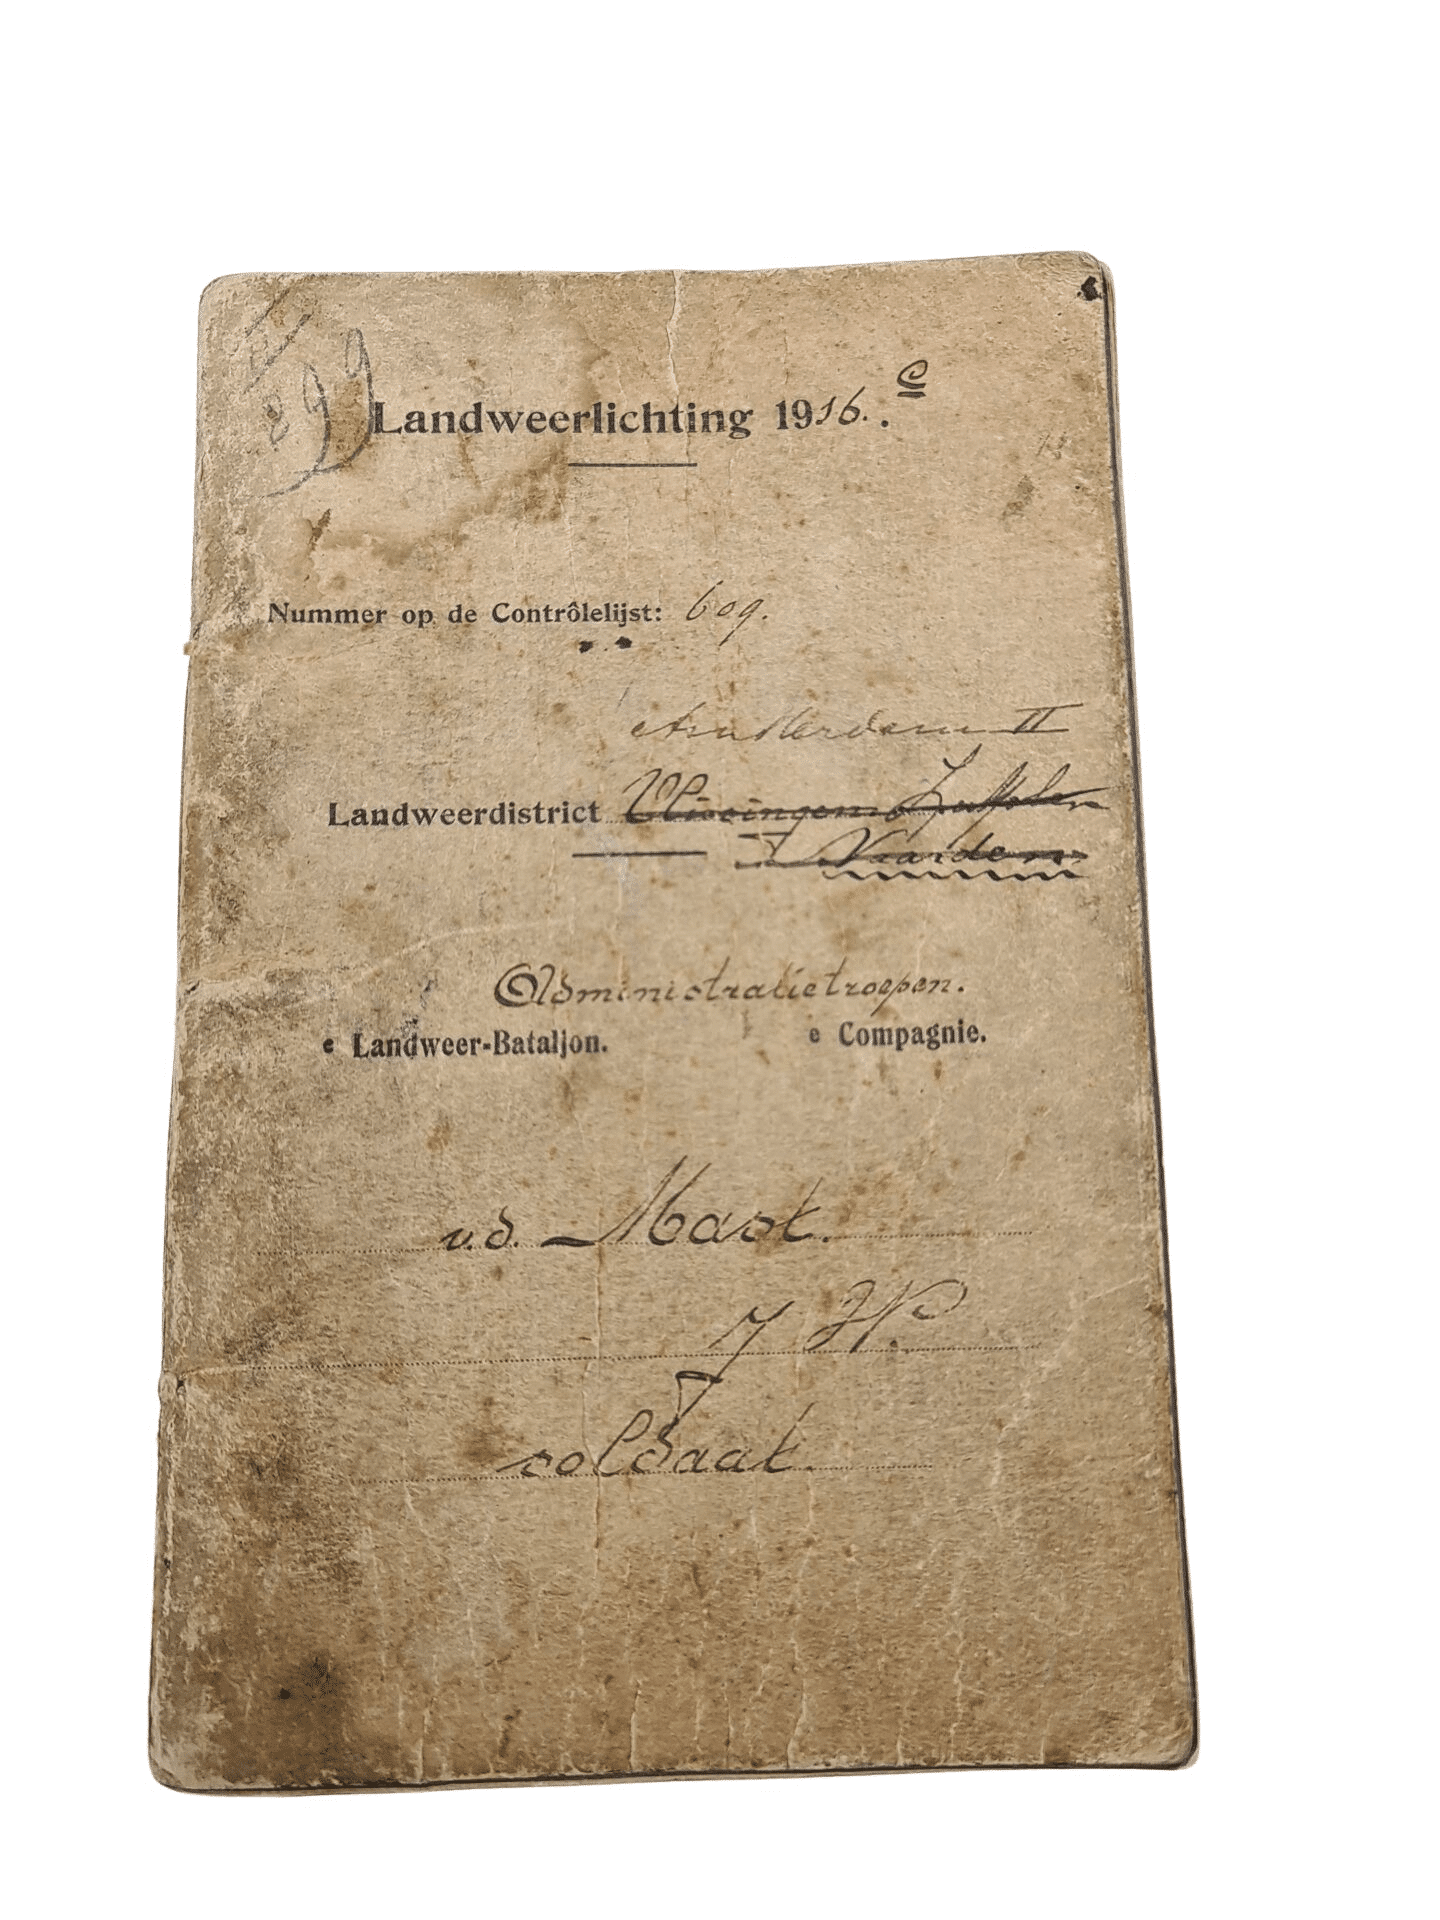 899
Landweerlichting 1916. C
Nummer op de Contrôlelijst: 609.
Amsterdam II
Landweerdistrict Vlissingen Zutphen
Naarden
Administratietroepen.
e Landweer-Bataljon. e Compagnie.
v.d. Mast.
J
soldaat.